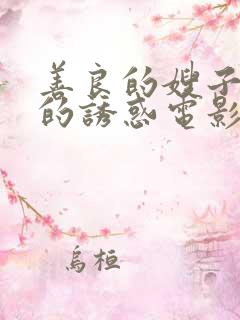 善良的嫂子
的誘惑電影
烏桓